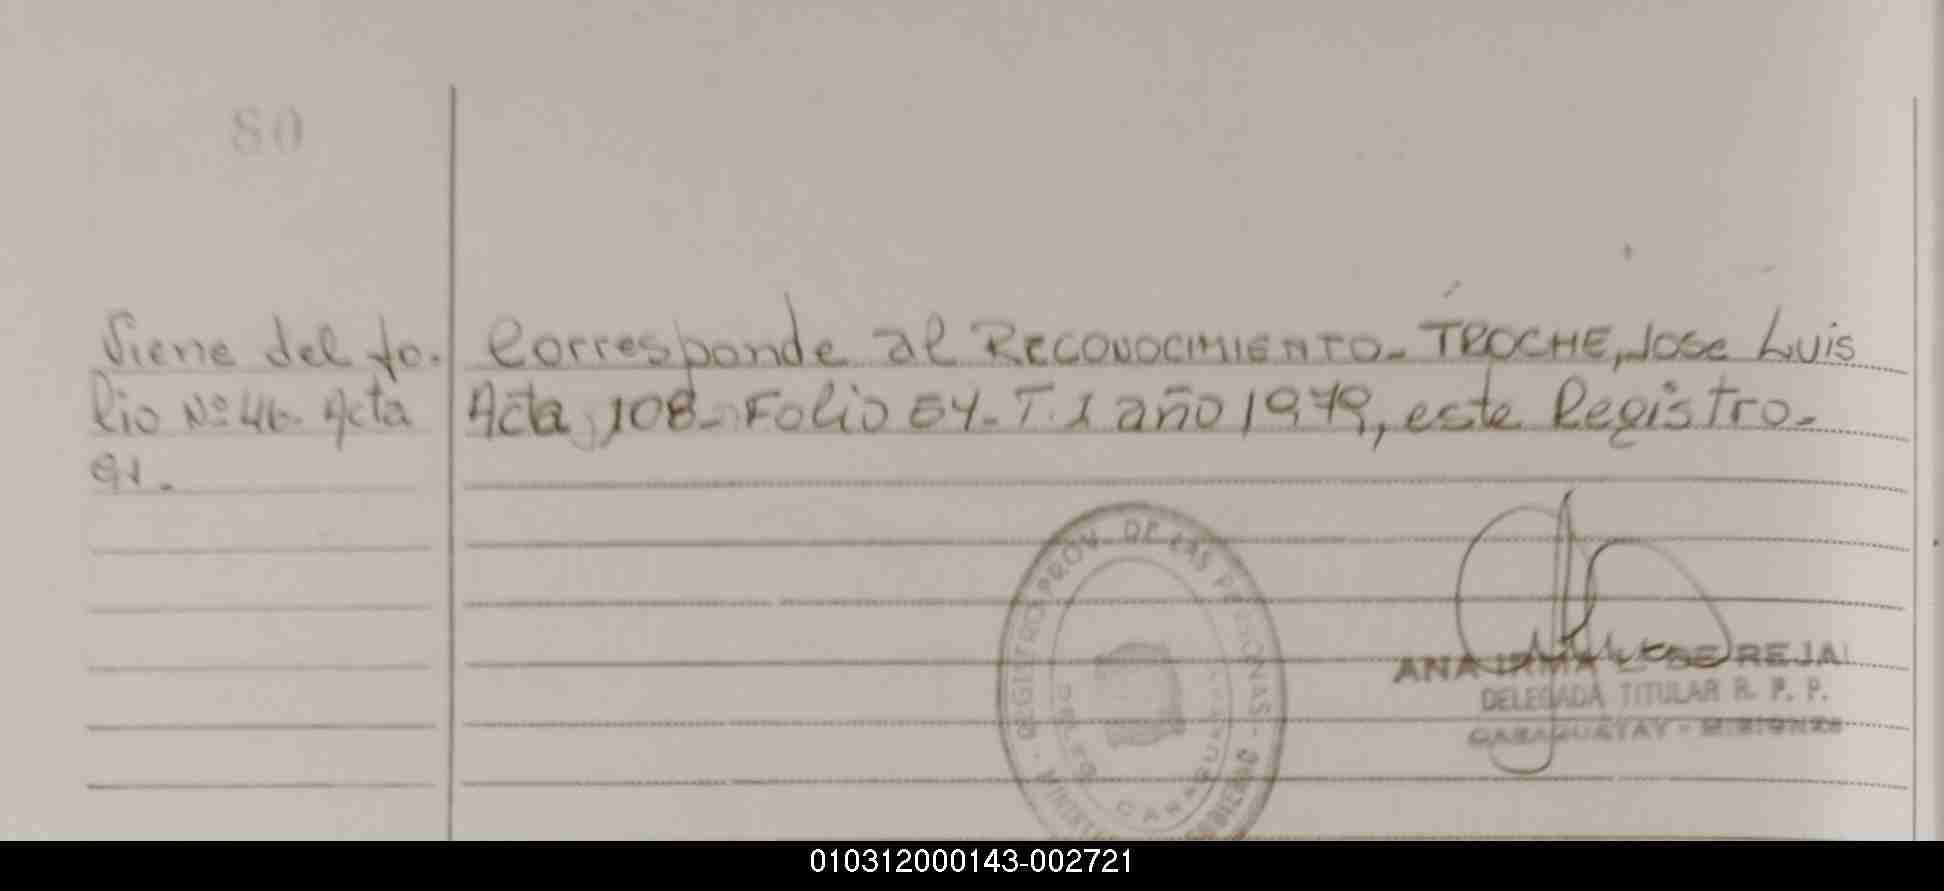 80
Viene del fo.
lio Nº 46. Acta
91.
Corresponde al RECONOCIMIENTO_ TROCHE, Jose Luis
Acta, 108_ Folio 54_ T. 1 año 1979, este Registro._
REGISTRO PROV. DE LAS PERSONAS
CARAGUATAY
ANA IRMA DE REJA
DELEGADA TITULAR R. P. P.
CARAGUATAY - MISIONES
010312000143-002721